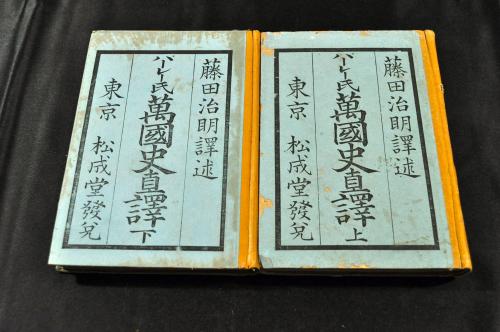 藤田治明譯述
パーレー氏萬國史直譯 上
東京 松成堂發兌
藤田治明譯述
パーレー氏萬國史直譯 下
東京 松成堂發兌